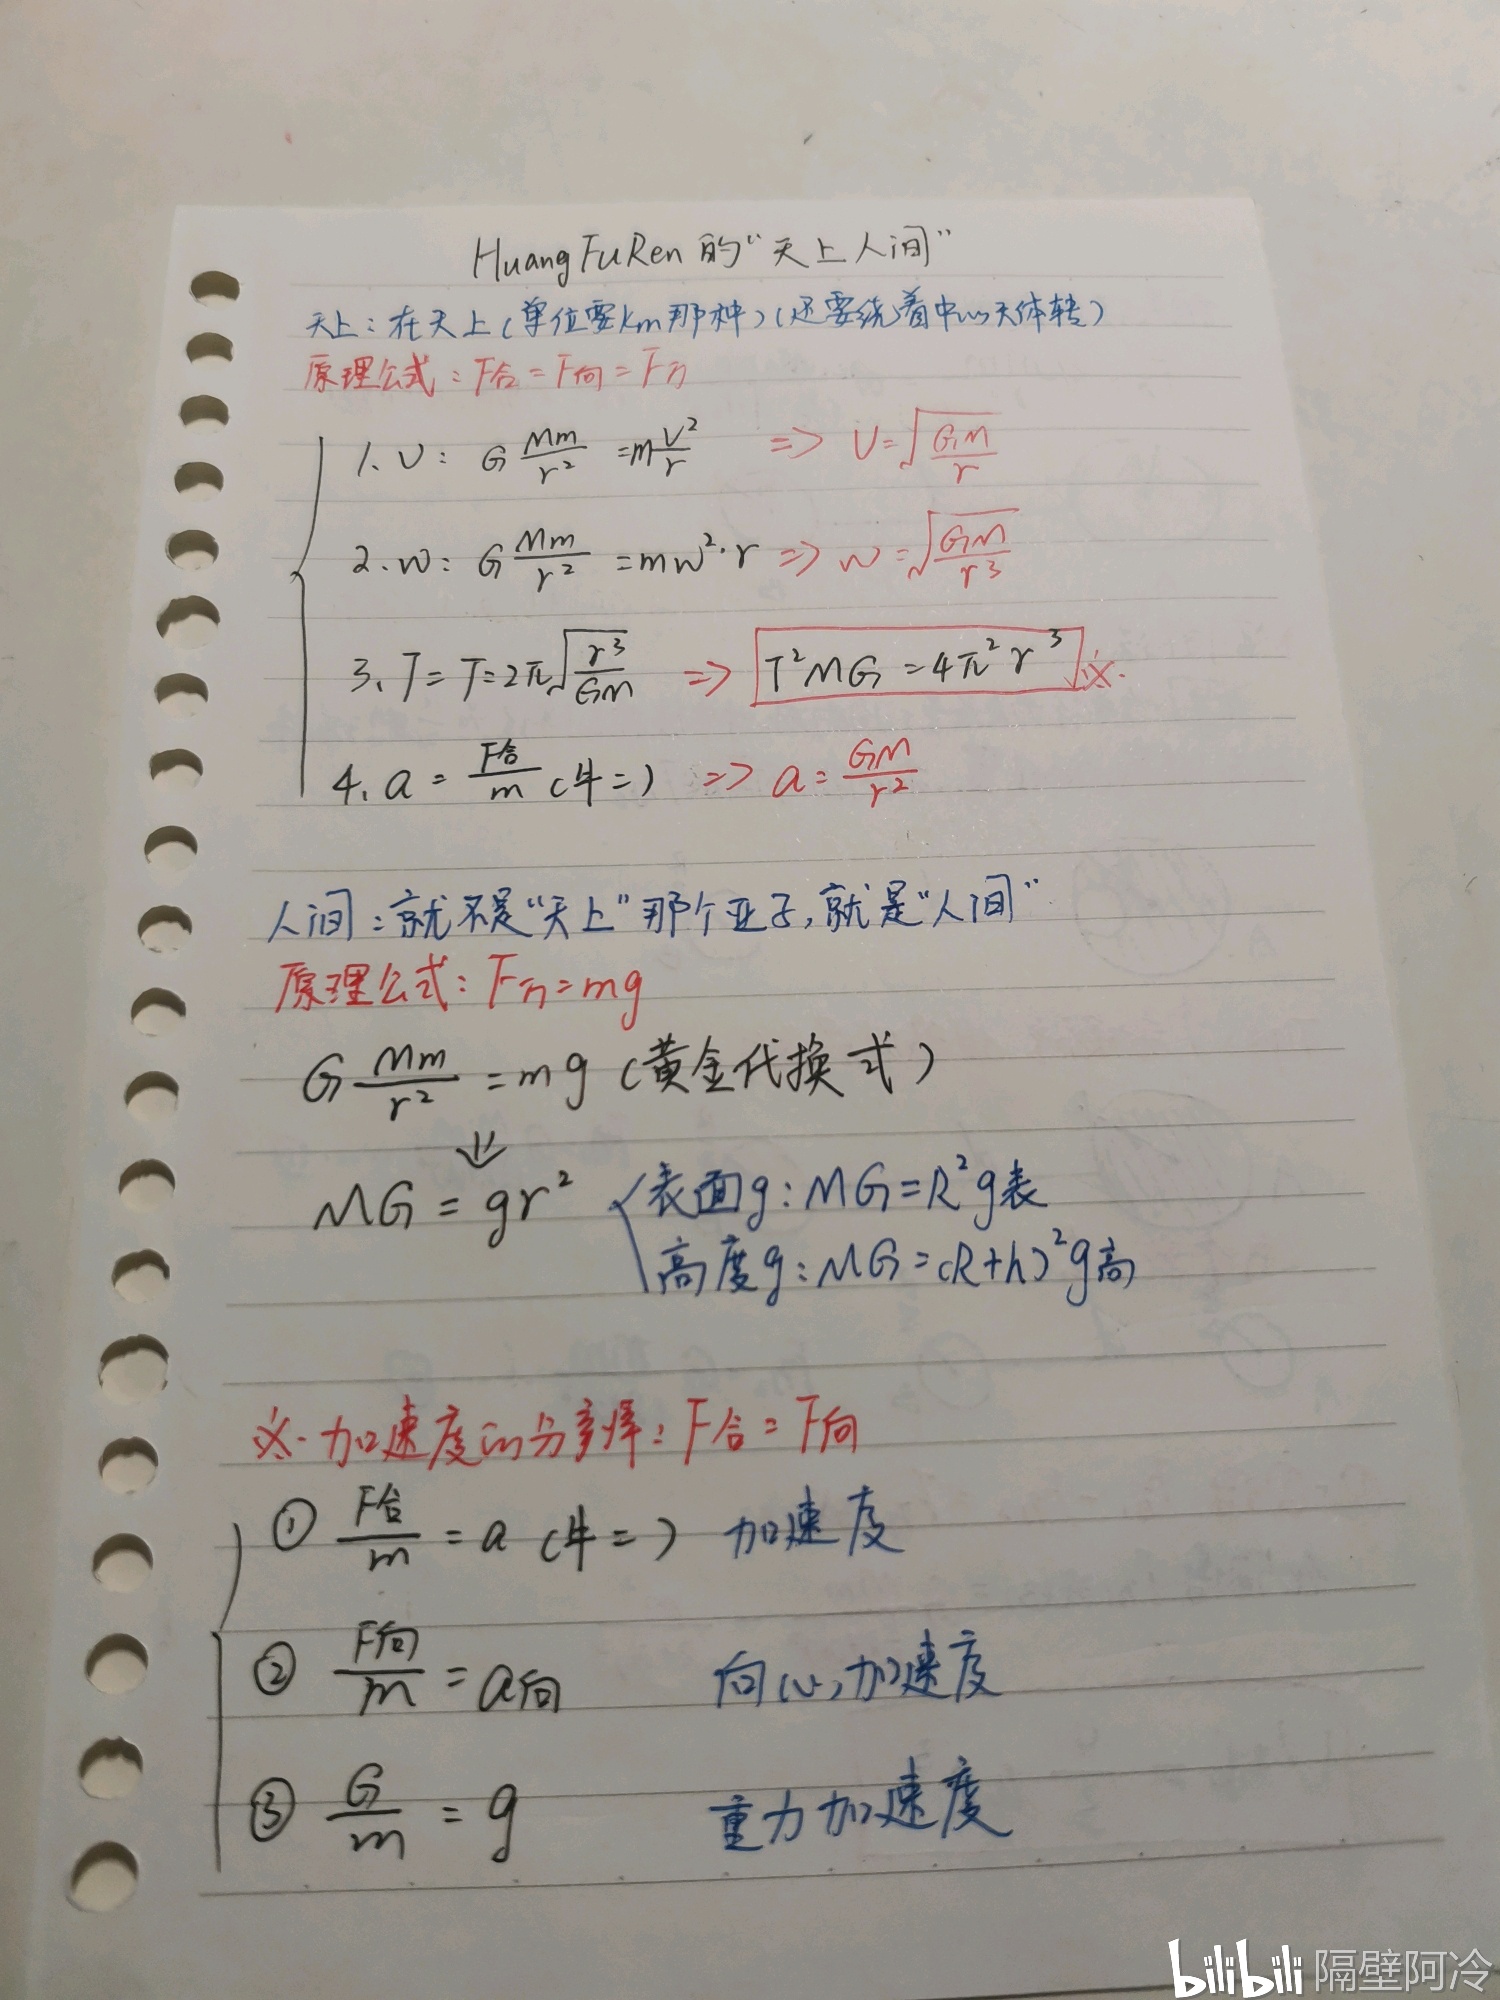 HuangFuRen的“天上人间”
天上：在天上（单位要km那种）（还要绕着中心天体转）
原理公式：F合=F向=F万
1. v： G Mm/r² = m v²/r => v=√(GM/r)
2. w： G Mm/r² = mw²·r => w=√(GM/r³)
3. T= T=2π√(r³/GM) => T²MG=4π²r³ ※.
4. a = F合/m （牛二） => a= GM/r²
人间：就不是“天上”那个亚子，就是“人间”
原理公式：F万=mg
G Mm/r² = mg （黄金代换式）
⇓
MG = gr²
表面g：MG=R²g表
高度g：MG=（R+h）²g高
※·加速度的分辨：F合=F向
① F合/m = a （牛二） 加速度
② F向/m = a向 向心加速度
③ G/m = g 重力加速度
bilibili 隔壁阿冷